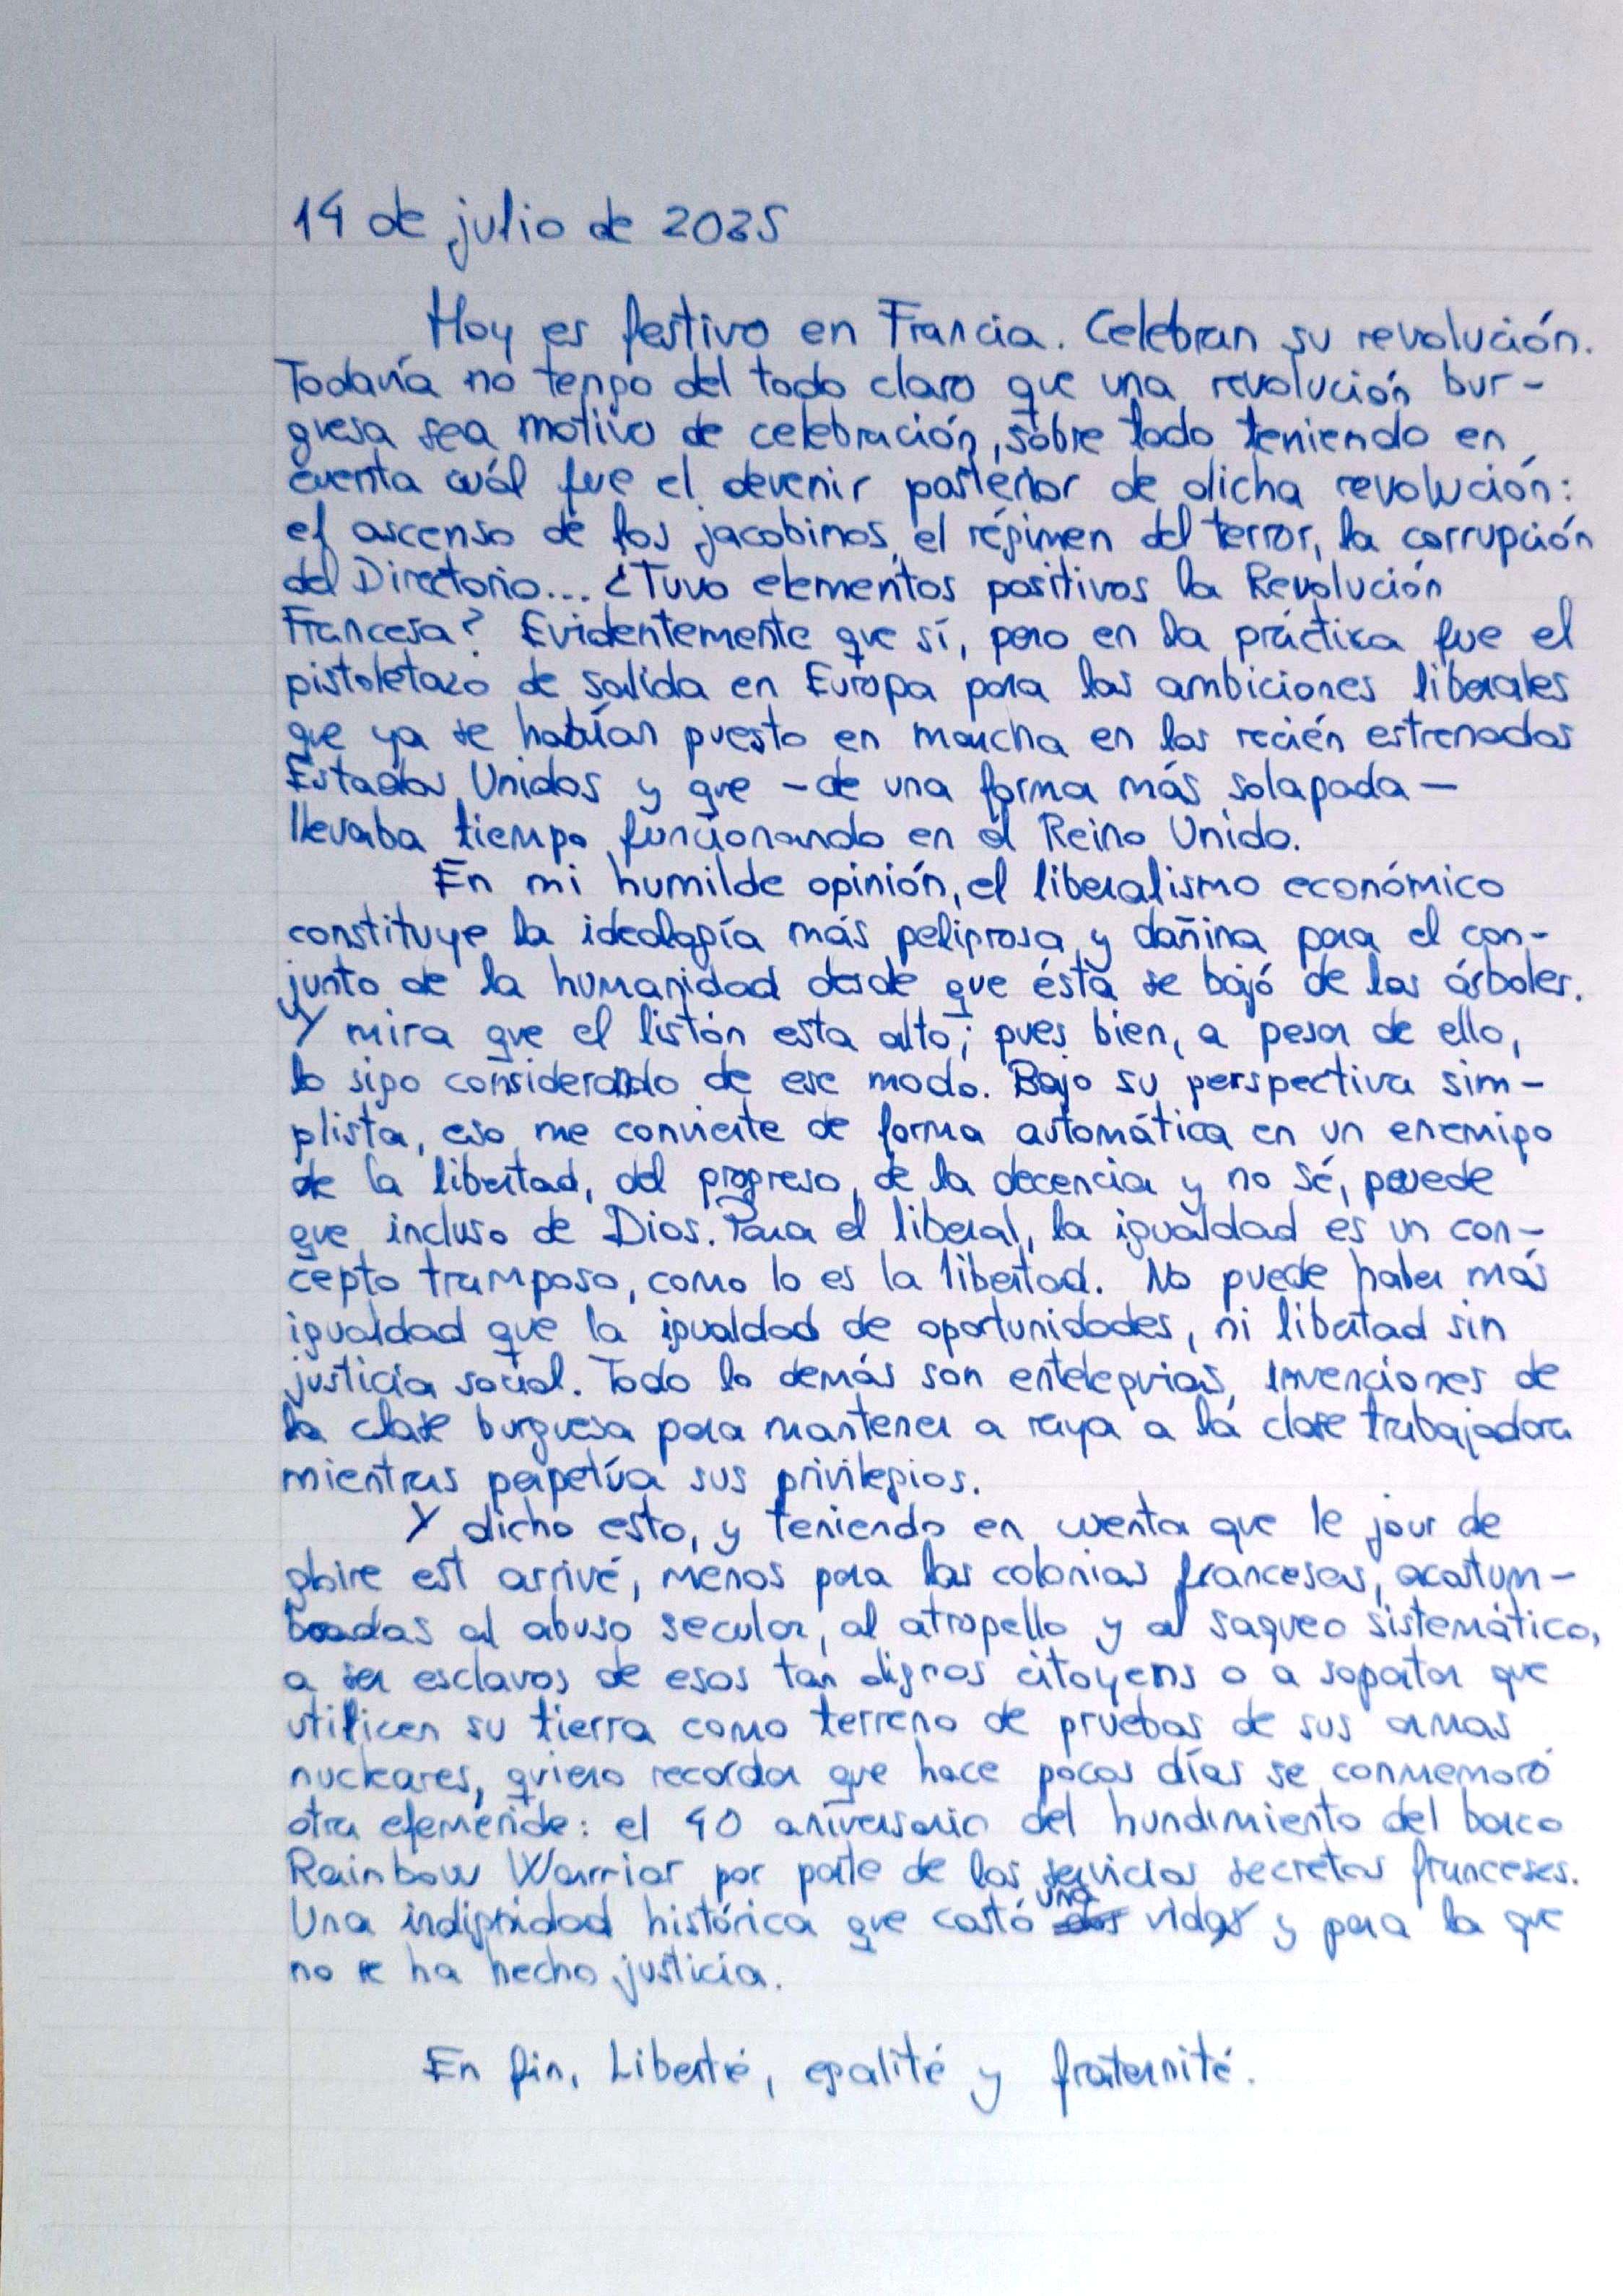 14 de julio de 2025
Hoy es festivo en Francia. Celebran su revolución.
Todavía no tengo del todo claro que una revolución bur-
guesa sea motivo de celebración, sobre todo teniendo en
cuenta cuál fue el devenir posterior de dicha revolución:
el ascenso de los jacobinos, el régimen del terror, la corrupción
del Directorio... ¿Tuvo elementos positivos la Revolución
Francesa? Evidentemente que sí, pero en la práctica fue el
pistoletazo de salida en Europa para las ambiciones liberales
que ya se habían puesto en marcha en los recién estrenados
Estados Unidos y que - de una forma más solapada -
llevaba tiempo funcionando en el Reino Unido.
En mi humilde opinión, el liberalismo económico
constituye la ideología más peligrosa y dañina para el con-
junto de la humanidad desde que ésta se bajó de los árboles.
Y mira que el listón esta alto; pues bien, a pesar de ello,
lo sigo considerando de ese modo. Bajo su perspectiva sim-
plista, eso me convierte de forma automática en un enemigo
de la libertad, del progreso, de la decencia y no sé, puede
que incluso de Dios. Para el liberal, la igualdad es un con-
cepto tramposo, como lo es la libertad. No puede haber más
igualdad que la igualdad de oportunidades, ni libertad sin
justicia social. Todo lo demás son entelequias, invenciones de
la clase burguesa para mantener a raya a la clase trabajadora
mientras perpetúa sus privilegios.
Y dicho esto, y teniendo en cuenta que le jour de
gloire est arrivé, menos para las colonias francesas, acostum-
bradas al abuso secular, al atropello y al saqueo sistemático,
a ser esclavos de esos tan dignos citoyens o a soportar que
utilicen su tierra como terreno de pruebas de sus armas
nucleares, quiero recordar que hace pocos días se conmemoró
otra efeméride: el 40 aniversario del hundimiento del barco
Rainbow Warrior por parte de los servicios secretos franceses.
Una indignidad histórica que costó una vida y para la que
no se ha hecho justicia.
En fin, Liberté, egalité y fraternité.